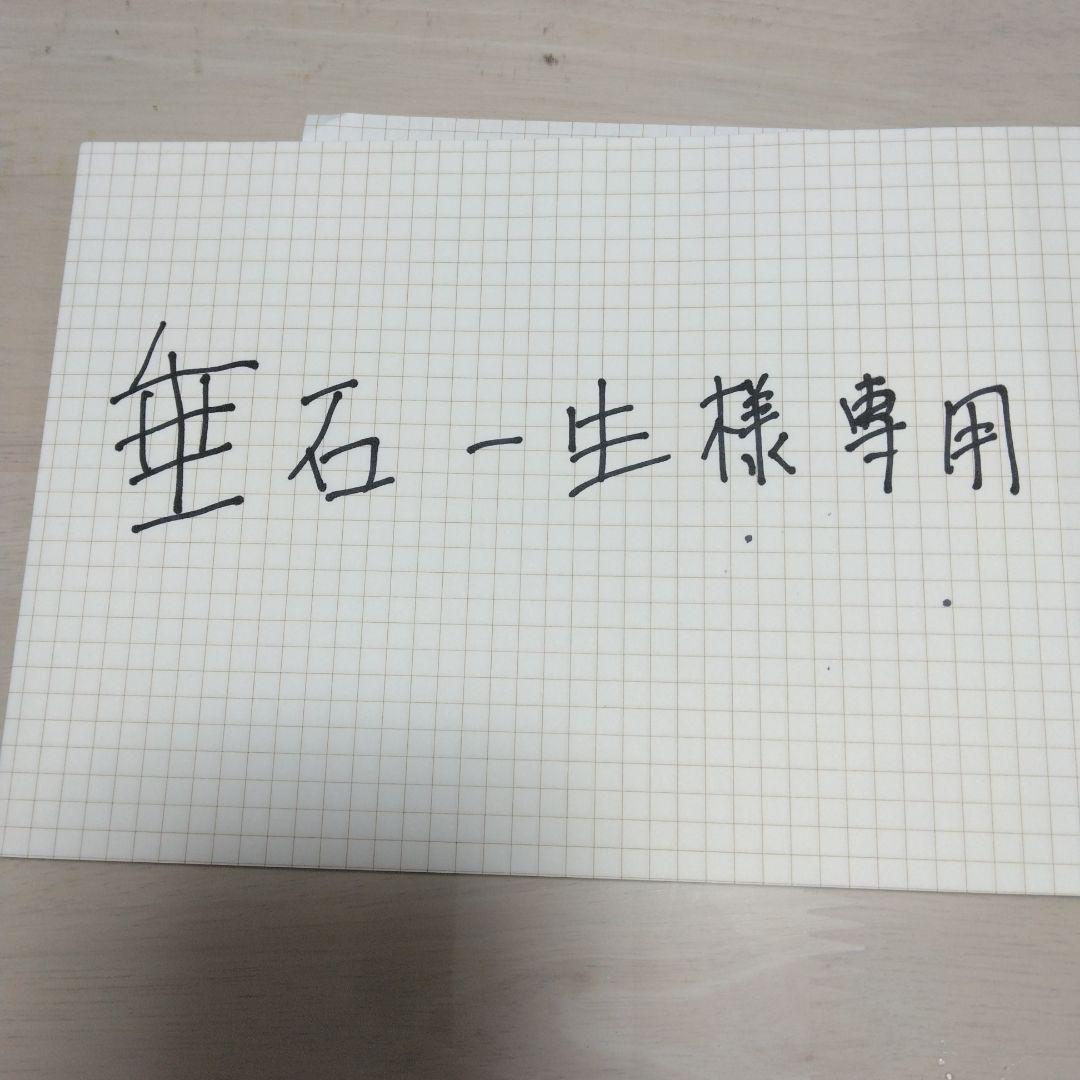 垂石一生様専用